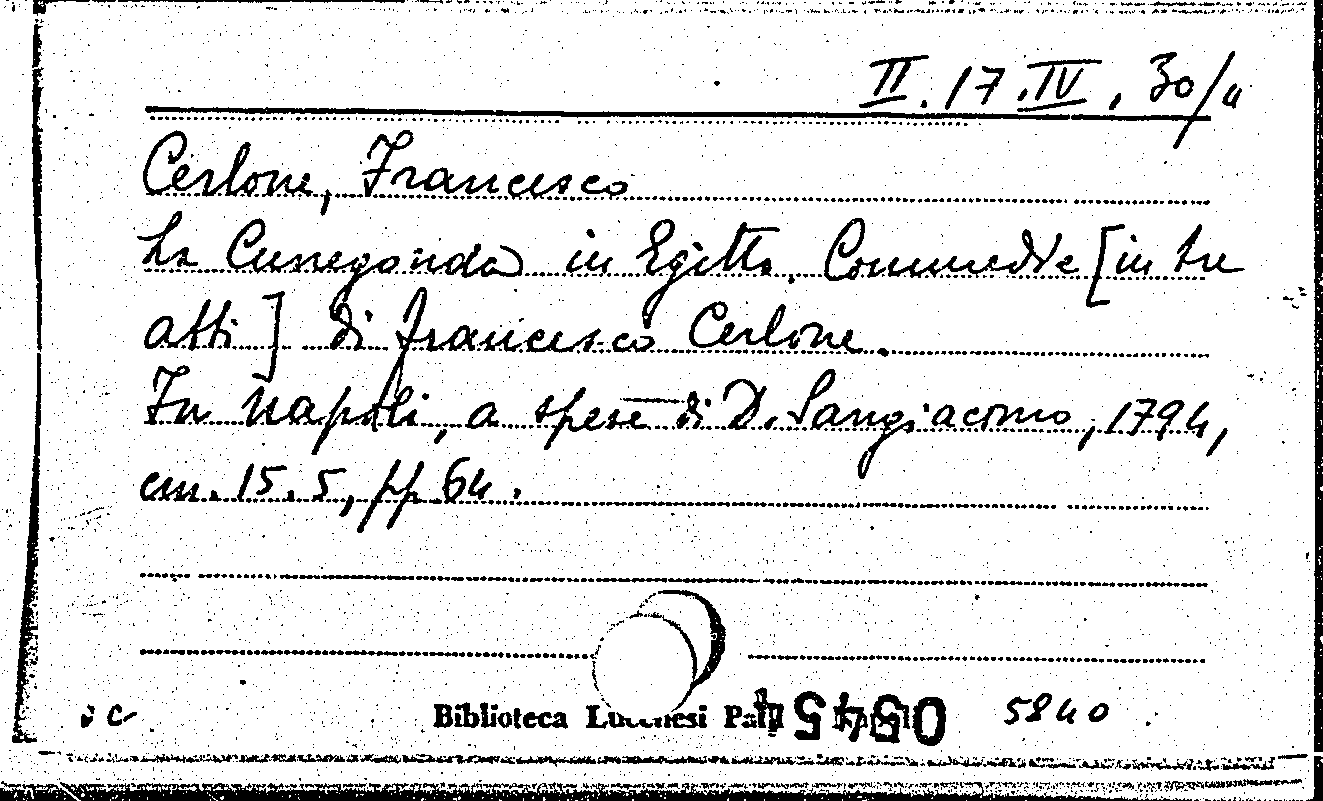 II.17.IV, 30/4
Cerlone, Francesco
La Cunegonda in Egitto. Commedia [in tre
atti] di Francesco Cerlone.
In Napoli, a spese di D. Sangiacomo, 1794,
cm. 15.5, pp. 64.
Biblioteca Lucchesi Palli 05454 5840